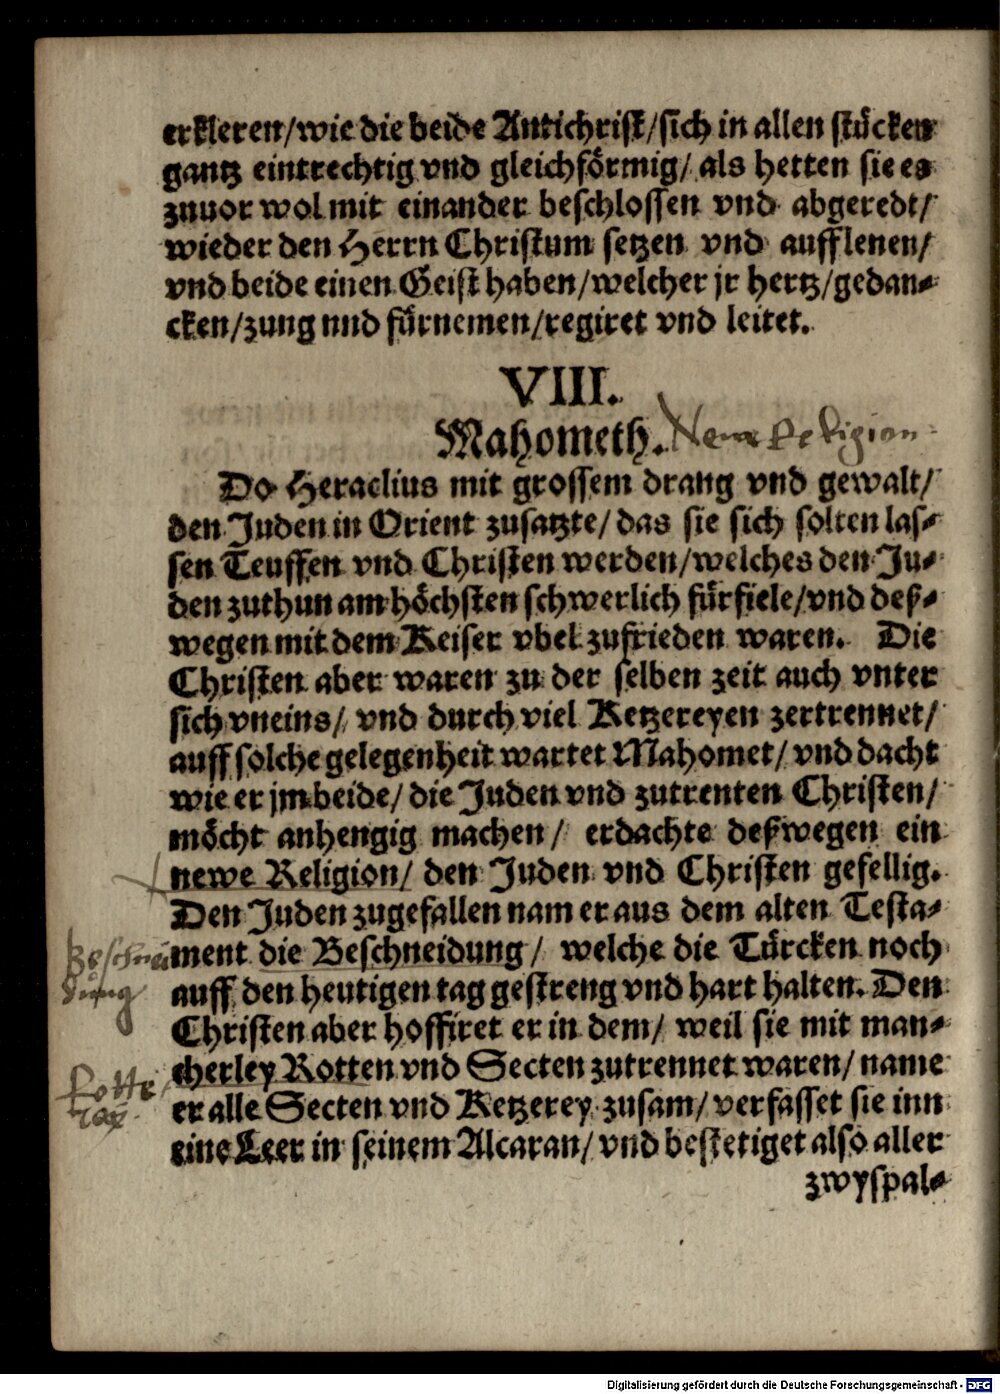 erkleren/wie die beide Antichrist/sich in allen stücken
gantz eintrechtig vnd gleichförmig/ als hetten sie es
zuuor wol mit einander beschlossen vnd abgeredt/
wieder den Herrn Christum setzen vnd aufflenen/
vnd beide einen Geist haben/welcher jr hertz/gedan-
cken/zung nnd fürnemen/regiret vnd leitet.
VIII.
Mahometh. New Religion
Do Heraclius mit grossem drang vnd gewalt/
den Juden in Orient zusatzte/das sie sich solten las-
sen Teuffen vnd Christen werden/welches den Ju-
den zuthun am höchsten schwerlich fürfiele/vnd deß-
wegen mit dem Keiser vbel zufrieden waren. Die
Christen aber waren zu der selben zeit auch vnter
sich vneins/ vnd durch viel Ketzereyen zertrennet/
auff solche gelegenheit wartet Mahomet/ vnd dacht
wie er jm beide/ die Juden vnd zutrenten Christen/
möcht anhengig machen/ erdachte deßwegen ein
newe Religion/ den Juden vnd Christen gefellig.
Den Juden zugefallen nam er aus dem alten Testa-
ment die Beschneidung/ welche die Türcken noch
auff den heutigen tag gestreng vnd hart halten. Den
Christen aber hoffiret er in dem/ weil sie mit man-
cherley Rotten vnd Secten zutrennet waren/ name
er alle Secten vnd Ketzerey zusam/ verfasset sie inn
eine Leer in seinem Alcaran/ vnd bestetiget also aller
zwyspal-
Beschnei
dung
Rotte
Digitalisierung gefördert durch die Deutsche Forschungsgemeinschaft - DFG